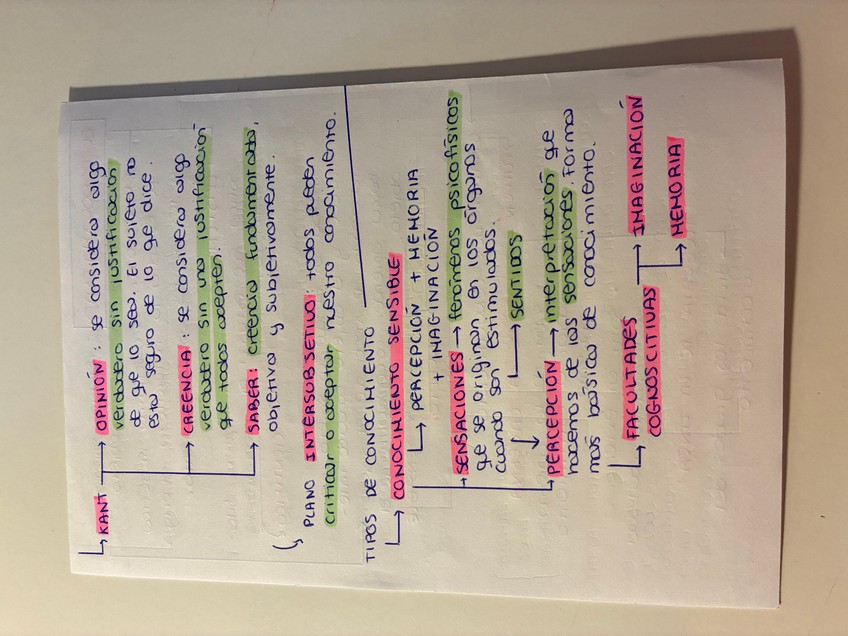 KANT → OPINIÓN: se considera algo
verdadero sin justificación
de que lo sea. El sujeto no
está seguro de lo que dice.
CREENCIA: se considera algo
verdadero sin una justificación
que todos acepten.
SABER: creencia fundamentada,
objetiva y subjetivamente.
PLANO INTERSUBJETIVO: todos pueden
criticar o aceptar nuestro conocimiento.
TIPOS DE CONOCIMIENTO
CONOCIMIENTO SENSIBLE
PERCEPCIÓN + MEMORIA
+ IMAGINACIÓN
SENSACIONES → fenómenos psicofísicos
que se originan en los órganos
cuando son estimulados.
SENTIDOS
PERCEPCIÓN → interpretación que
hacemos de las sensaciones. Forma
más básica de conocimiento.
FACULTADES
COGNOSCITIVAS
IMAGINACIÓN
MEMORIA